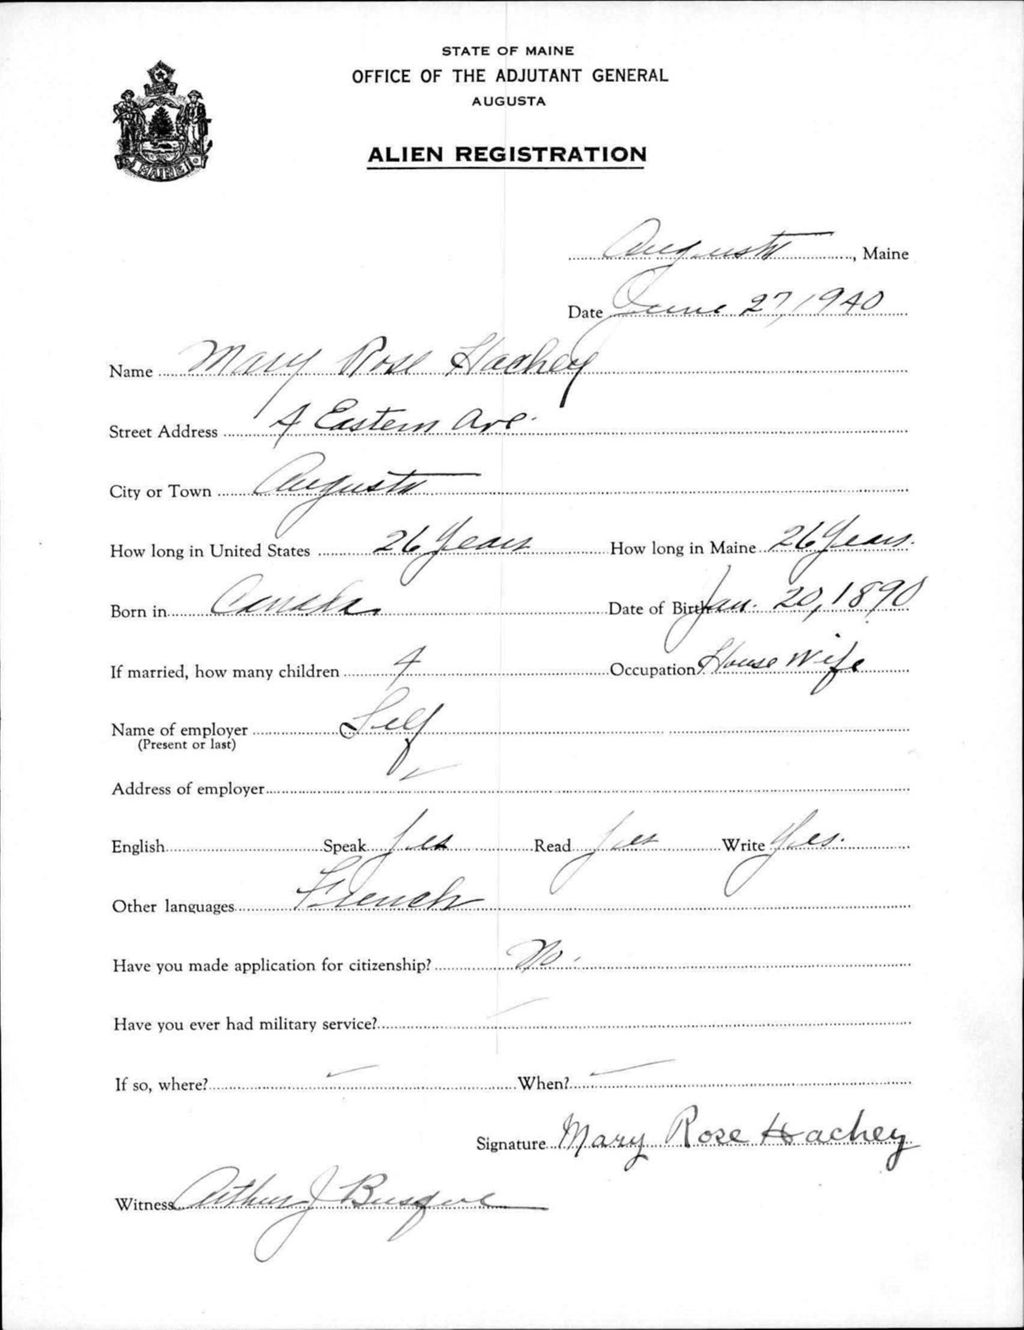 STATE OF MAINE
OFFICE OF THE ADJUTANT GENERAL
AUGUSTA
ALIEN REGISTRATION
MAINE
Augusta, Maine
Date June 27, 1940
Name Mary Rose Hachey
Street Address 4 Eastern Ave.
City or Town Augusta
How long in United States 26 Years How long in Maine 26 Years.
Born in Canada Date of Birth Jan. 20, 1890
If married, how many children 4 Occupation House Wife
Name of employer Self
(Present or last)
Address of employer
English Speak yes Read yes Write Yes.
Other languages French
Have you made application for citizenship? No.
Have you ever had military service?
If so, where? When?
Signature Mary Rose Hachey
Witness Arthur J Busque